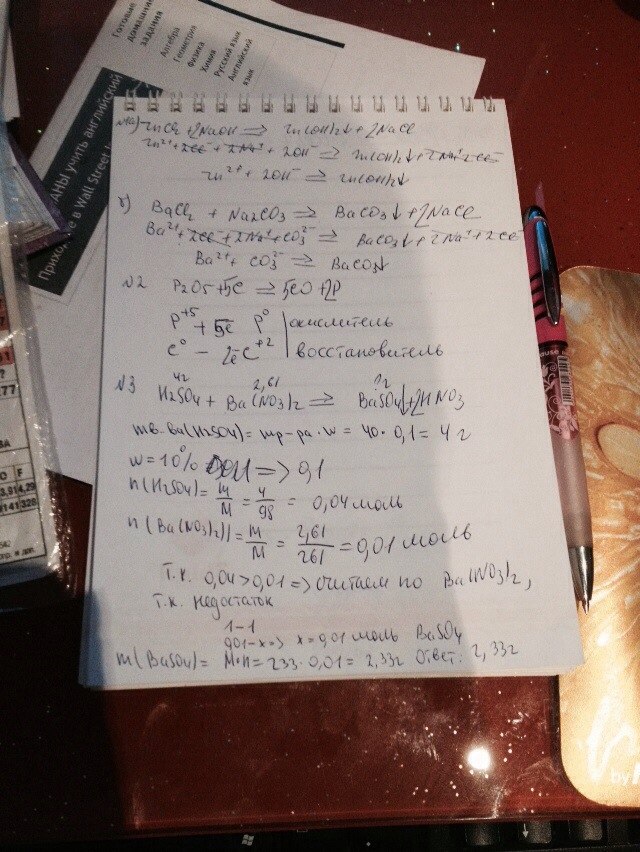 Готовые
домашние
задания
Алгебра
Геометрия
Физика
Химия
Русский язык
Английский
язык
АНЫ учить английский
в Wall Street
ZnCl2 + 2NaOH => Zn(OH)2↓ + 2NaCl
Zn²⁺ + 2Cl⁻ + 2Na⁺ + 2OH⁻ => Zn(OH)2↓ + 2Na⁺ 2Cl⁻
Zn²⁺ + 2OH⁻ => Zn(OH)2↓
BaCl2 + Na2CO3 => BaCO3↓ + 2NaCl
Ba²⁺ + 2Cl⁻ + 2Na⁺ + CO3²⁻ => BaCO3↓ + 2Na⁺ + 2Cl⁻
Ba²⁺ + CO3²⁻ => BaCO3↓
№2 P2O5 + 5C => 5CO + 2P
P⁺⁵ + 5ē P⁰ | окислитель
C⁰ – 2ē C⁺² | восстановитель
4г 2,61 ?г
№3 H2SO4 + Ba(NO3)2 => BaSO4↓ + 2HNO3
mв-ва(H2SO4) = mр-ра · w = 40 · 0,1 = 4 г
w = 10% => 0,1
n(H2SO4) = m/M = 4/98 = 0,04 моль
n(Ba(NO3)2) = m/M = 2,61/261 = 0,01 моль
Т.к. 0,04 > 0,01 => считаем по Ba(NO3)2,
т.к. недостаток
1–1
0,01–x => x = 0,01 моль BaSO4
m(BaSO4) = M·n = 233 · 0,01 = 2,33г Ответ: 2,33г